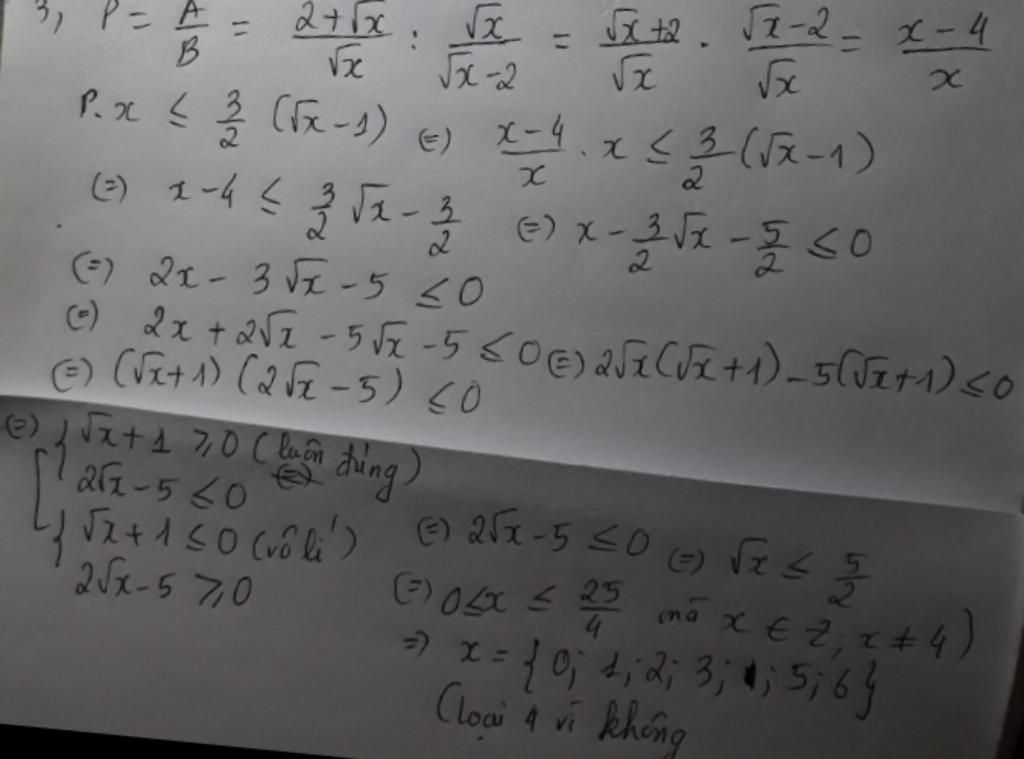 3, P = A/B = (2+√x)/√x : √x/(√x-2) = (√x+2)/√x . (√x-2)/√x = (x-4)/x
P.x ≤ 3/2 (√x-1) (=) (x-4)/x . x ≤ 3/2 (√x-1)
(=) x-4 ≤ 3/2 √x - 3/2 (=) x - 3/2 √x - 5/2 ≤ 0
(=) 2x - 3√x - 5 ≤ 0
(=) 2x + 2√x - 5√x - 5 ≤ 0 (=) 2√x(√x+1) - 5(√x+1) ≤ 0
(=) (√x+1) (2√x-5) ≤ 0
(=) [ { √x+1 ≥ 0 (luôn đúng)
2√x-5 ≤ 0
{ √x+1 ≤ 0 (vô lí) (=) 2√x-5 ≤ 0 (=) √x ≤ 5/2
2√x-5 ≥ 0 (=) 0≤x ≤ 25/4 mà x ∈ Z; x ≠ 4)
=) x = {0; 1; 2; 3; ; 5; 6}
(loại 4 vì không